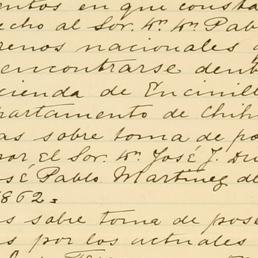 entos en que consta
echo al Sor. Dn. Dn. Pabl
renos nacionales
encontrarse dent
cienda de Encinill
partamento de Chih
as sobre toma de po
por el Sor. Dn. José J. Du
sé Pablo Martinez de
1862=
as sobre toma de pose
as por los actuales